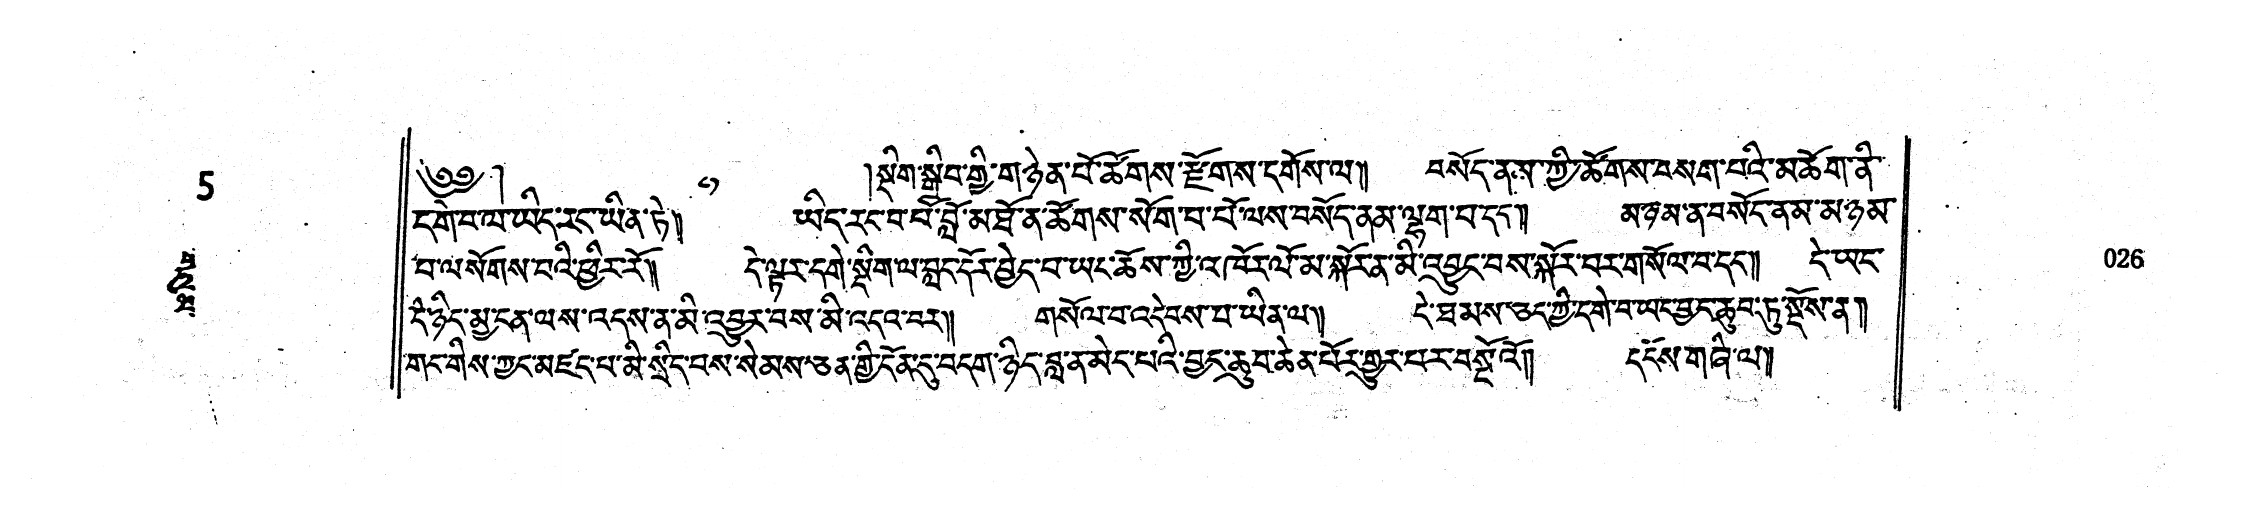 ༄༅། །སྡིག་སྒྲིབ་ཀྱི་གཉེན་པོ་ཚོགས་རྫོགས་དགོས་ལ༎ བསོད་ནམས་ཀྱི་ཚོགས་བསག་པའི་མཆོག་ནི་
དགེ་བ་ལ་ཡིད་རང་ཡིན་ཏེ༎ ཡིད་རང་བ་པོ་བློ་མཐོ་ན་ཚོགས་སོག་པ་པོ་ལས་བསོད་ནམ་ལྷག་པ་དད༎ མཉམ་ན་བསོད་ནམ་མཉམ་
པ་ལ་སོགས་པའི་ཕྱིར་རོ༎ དེ་ལྟར་དགེ་སྡིག་ལ་བླང་དོར་བྱེད་པ་ཡང་ཆོས་ཀྱི་འཁོར་ལོ་མ་སྐོར་ན་མི་འབྱུང་བས་སྐོར་བར་གསོལ་བ་དང༎ དེ་ཡང་
དེ་ཉིད་མྱ་ངན་ལས་འདས་ན་མི་འབྱུར་བས་མི་འདའ་བར༎ གསོལ་བ་འདེབས་པ་ཡིན་ལ༎ དེ་ཐམས་ཅད་ཀྱི་དགེ་བ་ཡང་བྱང་ཆུབ་ཏུ་སྔོས་ན༎
གང་གིས་ཀྱང་མཛད་པ་མི་སྲིད་བས་སེམས་ཅན་གྱི་དོན་དུ་བདག་ཉིད་བླ་ན་མེད་པའི་བྱང་ཆུབ་ཆེན་པོར་གྱུར་པར་བསྔོ་འོ༎ དངོས་གཞི་ལ༎
5
026